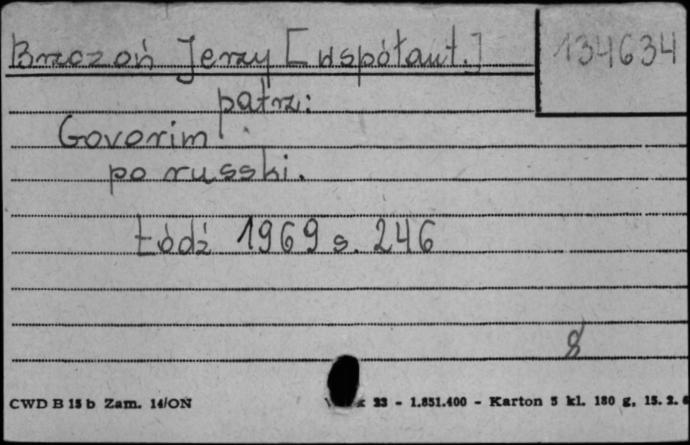 Brzozoń Jerzy [współaut.]
134634
patrz:
Govorim
po russki.
Łódź 1969 s. 246
8
CWD B 15 b Zam. 14/ON
23 - 1.851.400 - Karton 5 kl. 180 g, 15. 2. 6